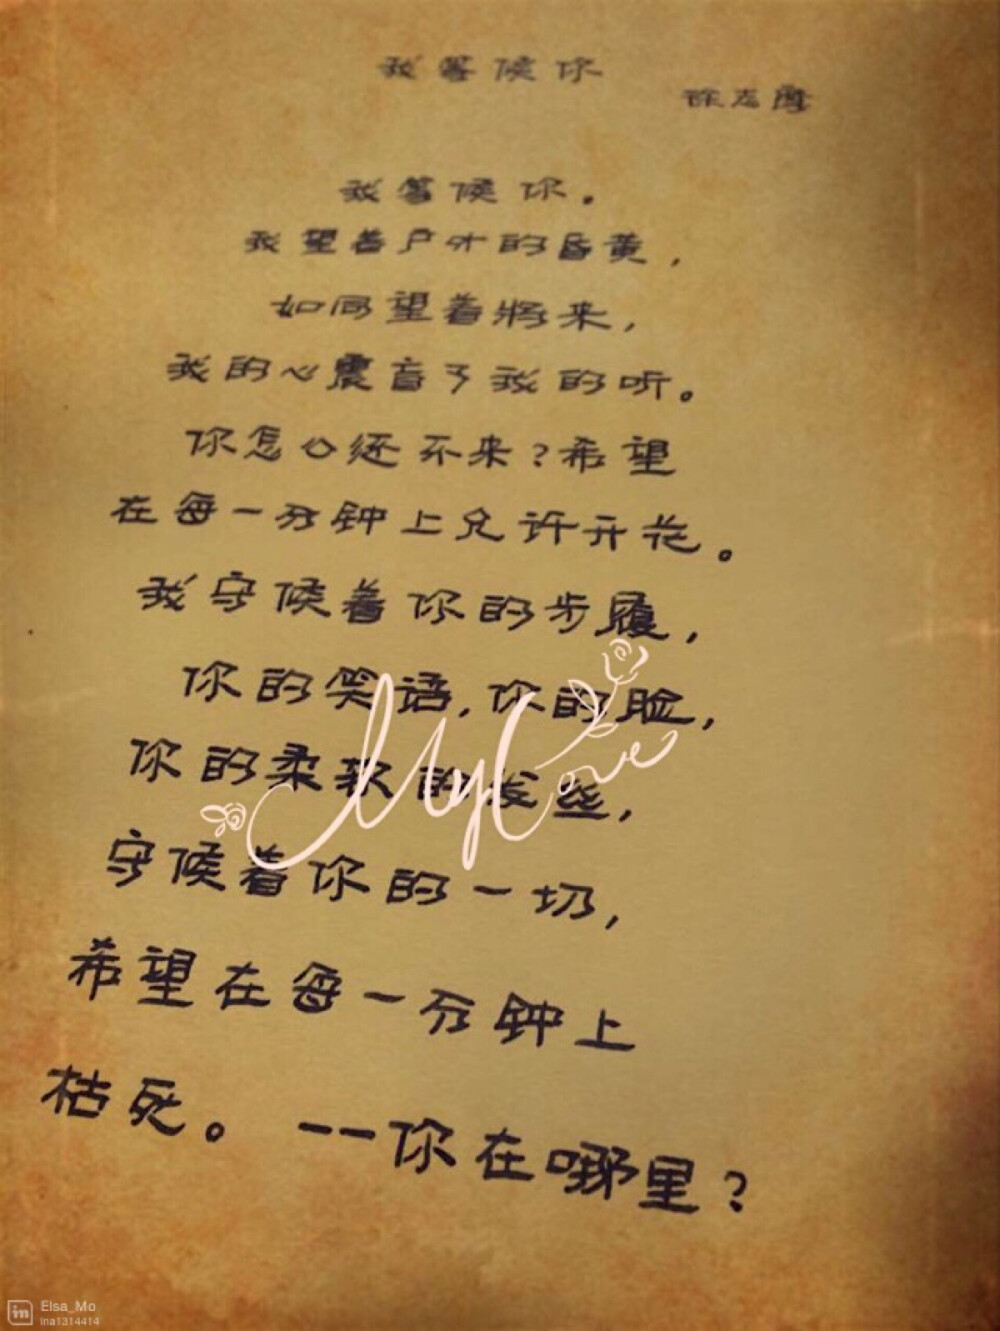 我等候你
徐志摩
我等候你。
我望着户外的昏黄，
如同望着将来，
我的心震盲了我的听。
你怎么还不来？希望
在每一分钟上允许开花。
我守候着你的步履，
你的笑语，你的脸，
你的柔软的发丝，
守候着你的一切，
希望在每一分钟上
枯死。——你在哪里？
My Love
in Elsa_Mo
ina1314414